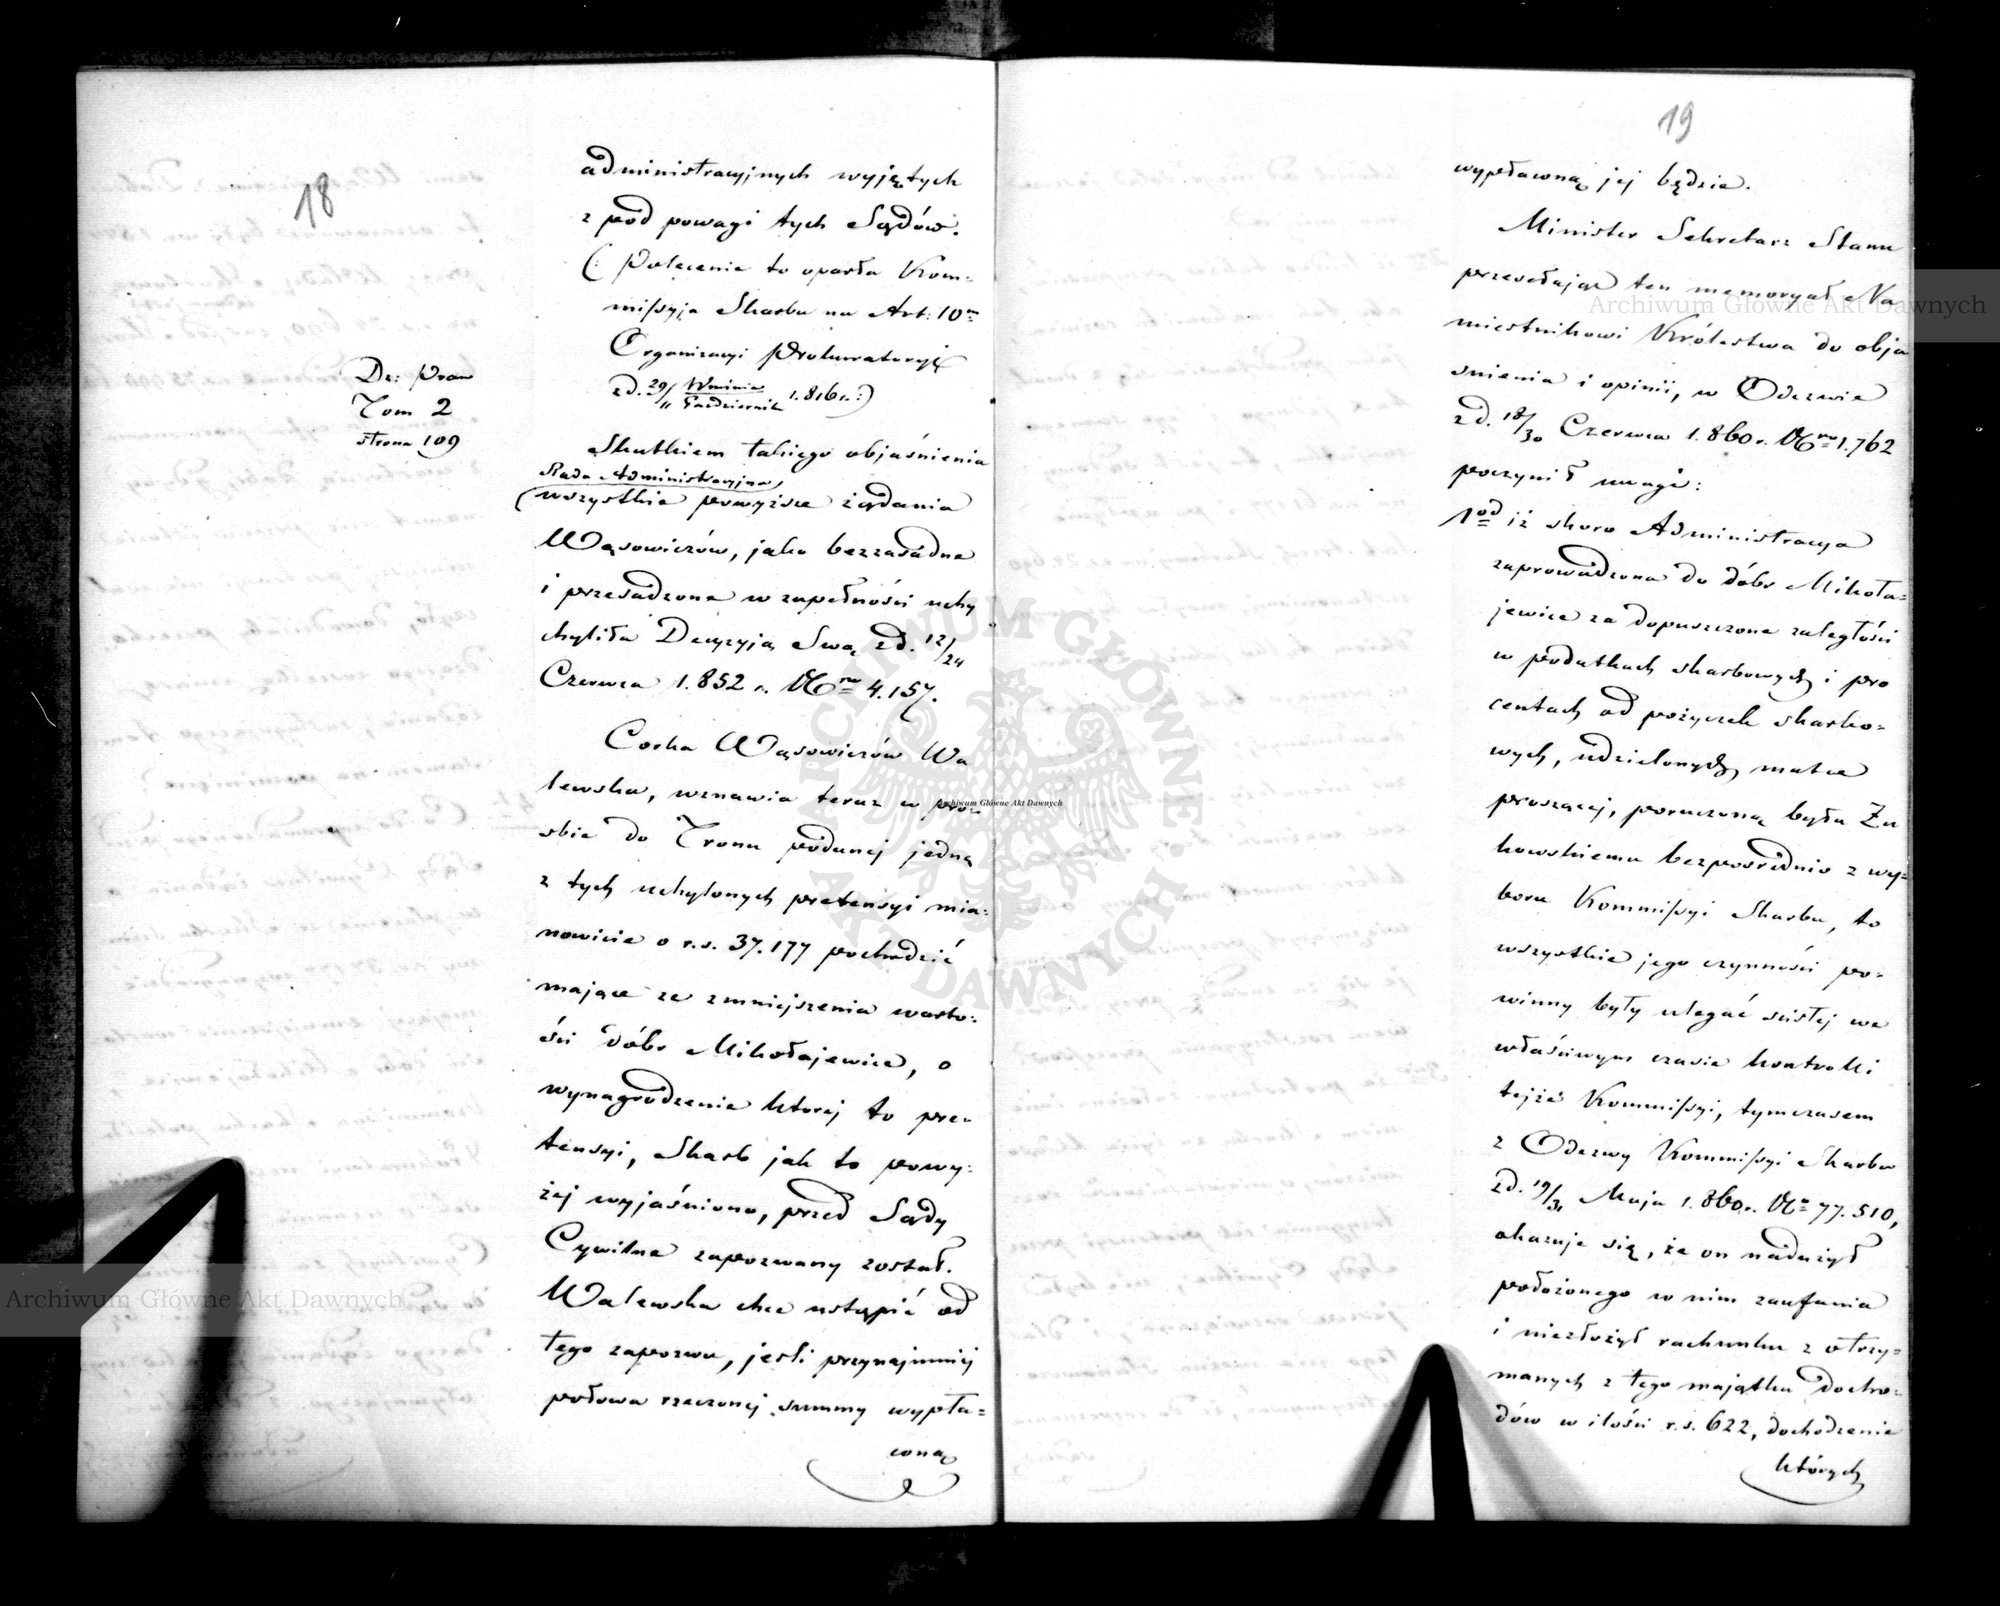 18
administracyjnych wyjętych
z pod powagi tych Sądów.
(: Polecenie to oparła Kom-
missyja Skarbu na Art: 10m
Organizacyi Prokuratoryi
zd. 29/11 Września/Październik 1.816 r:)
Dz: Praw
Tom 2
strona 109
Skutkiem takiego objaśnienia
Rada Administracyjna
wszystkie powyższe żądania
Wąsowiczów, jako bezzasadne
i przesadzone w zupełności uchy
chyliła Decyzyją Swą zd. 12/24
Czerwca 1.852 r. Nro 4.157.
Corka Wąsowiczów Wa
lewska, wznawia teraz w proź
sbie do Tronu podanej jedną
z tych uchylonych pretensyi mia-
nowicie o r.s. 37.177 pochodzić
mające ze zmniejszenia warto-
ści dóbr Mikołajewice, o
wynagrodzenie ktorej to pre-
tensyi, Skarb jak to powy-
żej wyjaśniono, przed Sądy
Cywilne zapozwany został.
Walewska chce ustąpić od
tego zapozwu, jeśli przynajmniej
połowa rzeczonej summy wypła-
coną
19
wypłaconą jej będzie.
Minister Sekretarz Stanu
przesełając ten memoryał Na
miestnikowi Królestwa do obja
śnienia i opinii, w Odezwie
zd. 18/30 Czerwca 1.860 r. Nro 1.762
poczynił uwagi:
1od iż skoro Administracya
zaprowadzona do dóbr Mikoła-
jewice za dopuszczone zaległości
w podatkach skarbowych i pro
centach od pożyczek skarbo-
wych, udzielonych matce
proszącej, poruczoną była Żu
kowskiemu bezpośrednio z wy-
boru Kommissyi Skarbu, to
wszystkie jego czynności po-
winny były ulegać ścisłej we
właściwym czasie kontrolli
tejże Kommissyi, tymczasem
z Odezwy Kommissyi Skarbu
zd. 19/31 Maja 1.860 r. Nro 77.510,
okazuje się, że on nadużył
położonego w nim zaufania
i niezłożył rachunku z otrzy-
manych z tego majątku docho-
dów w ilości r.s. 622, dochodzenie
których
Archiwum Główne Akt Dawnych
Archiwum Główne Akt Dawnych
Archiwum Główne Akt Dawnych
ARCHIWUM GŁÓWNE AKT DAWNYCH